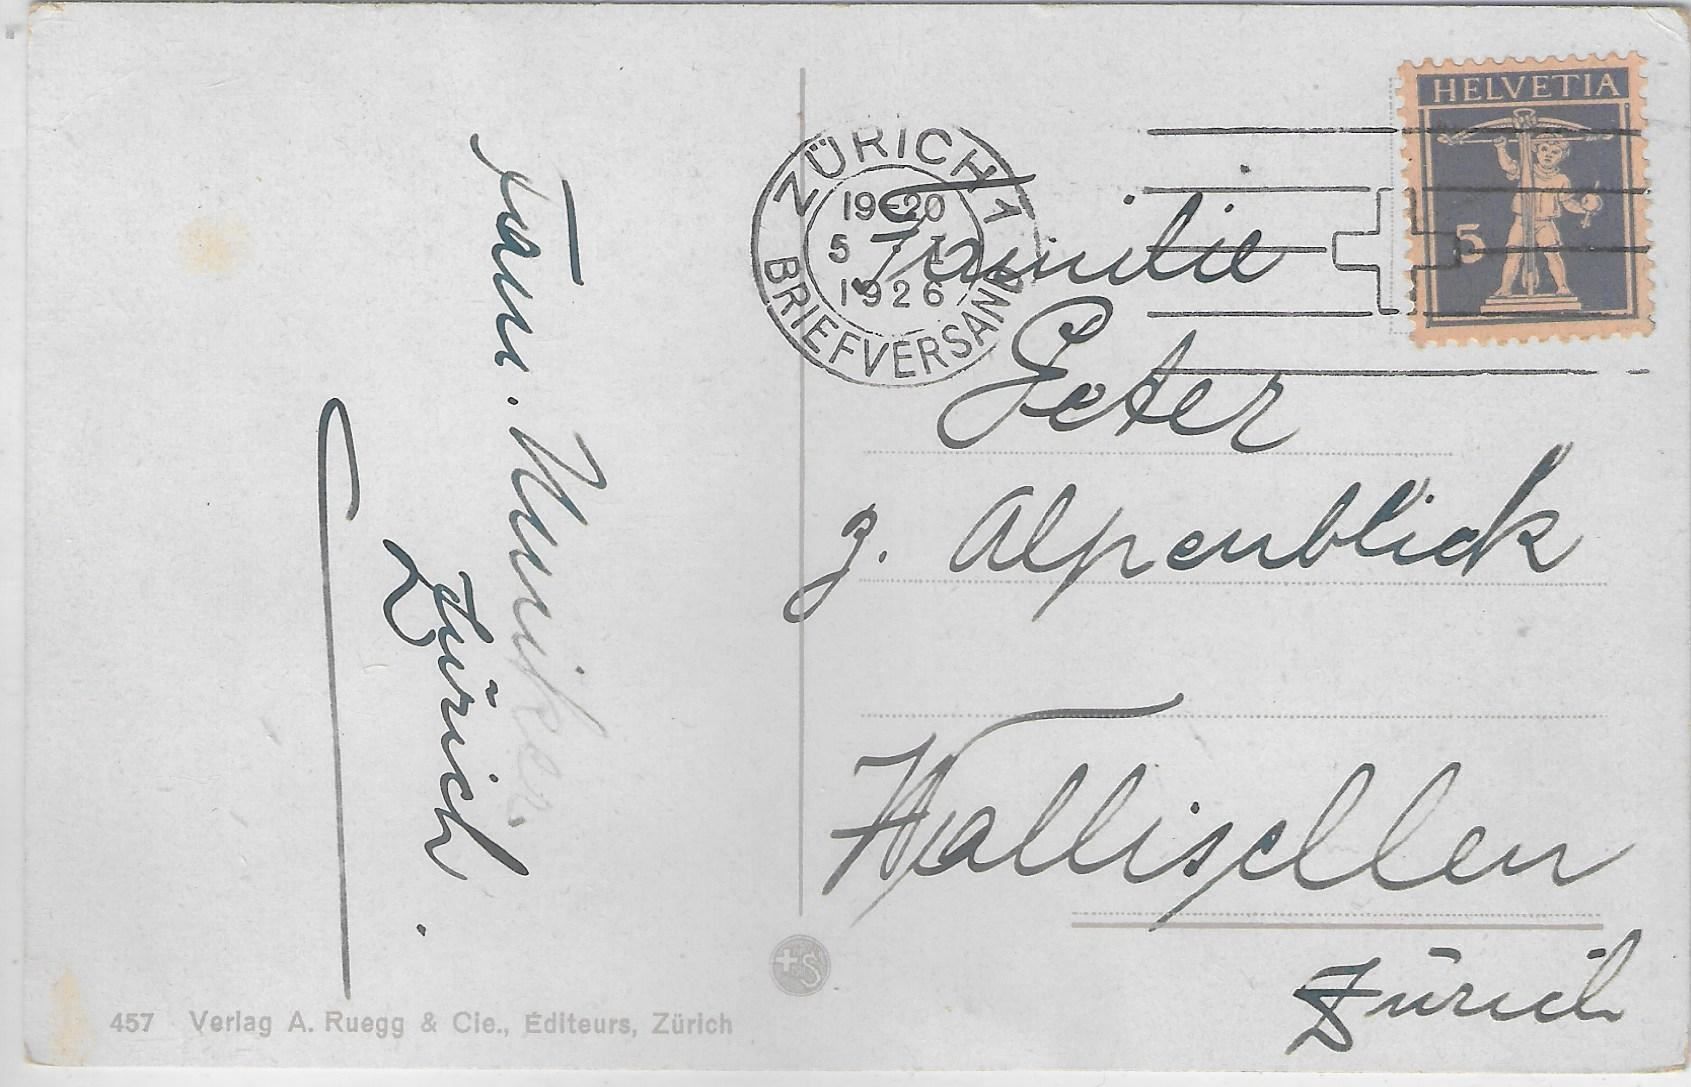 Fam. Muniker
Zürich.
457 Verlag A. Ruegg & Cie., Éditeurs, Zürich
ZÜRICH 1
19-20
5 I
1926
BRIEFVERSAND
HELVETIA
5
Familie
Peter
z. Alpenblick
Wallisellen
Zürich